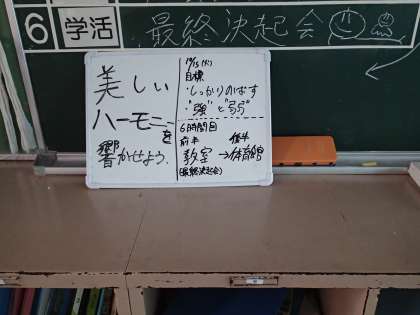 6 学活 最終決起会
美しい
ハーモニーを
響かせよう.
目標
・しっかりのばす
・"強"と"弱"
6時間目
前半 後半
教室→体育館
(最終決起会)